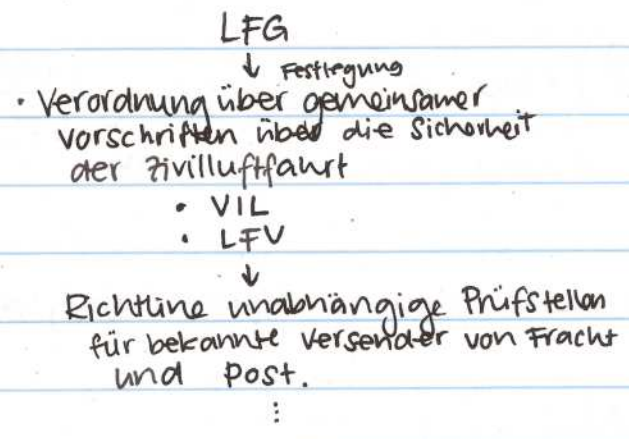 LFG
↓ Festlegung
• Verordnung über gemeinsamer
vorschriften über die Sicherheit
der Zivilluftfahrt
• VIL
• LFV
↓
Richtline unabhängige Prüfstellen
für bekannte Versender von Fracht
und Post.
⋮